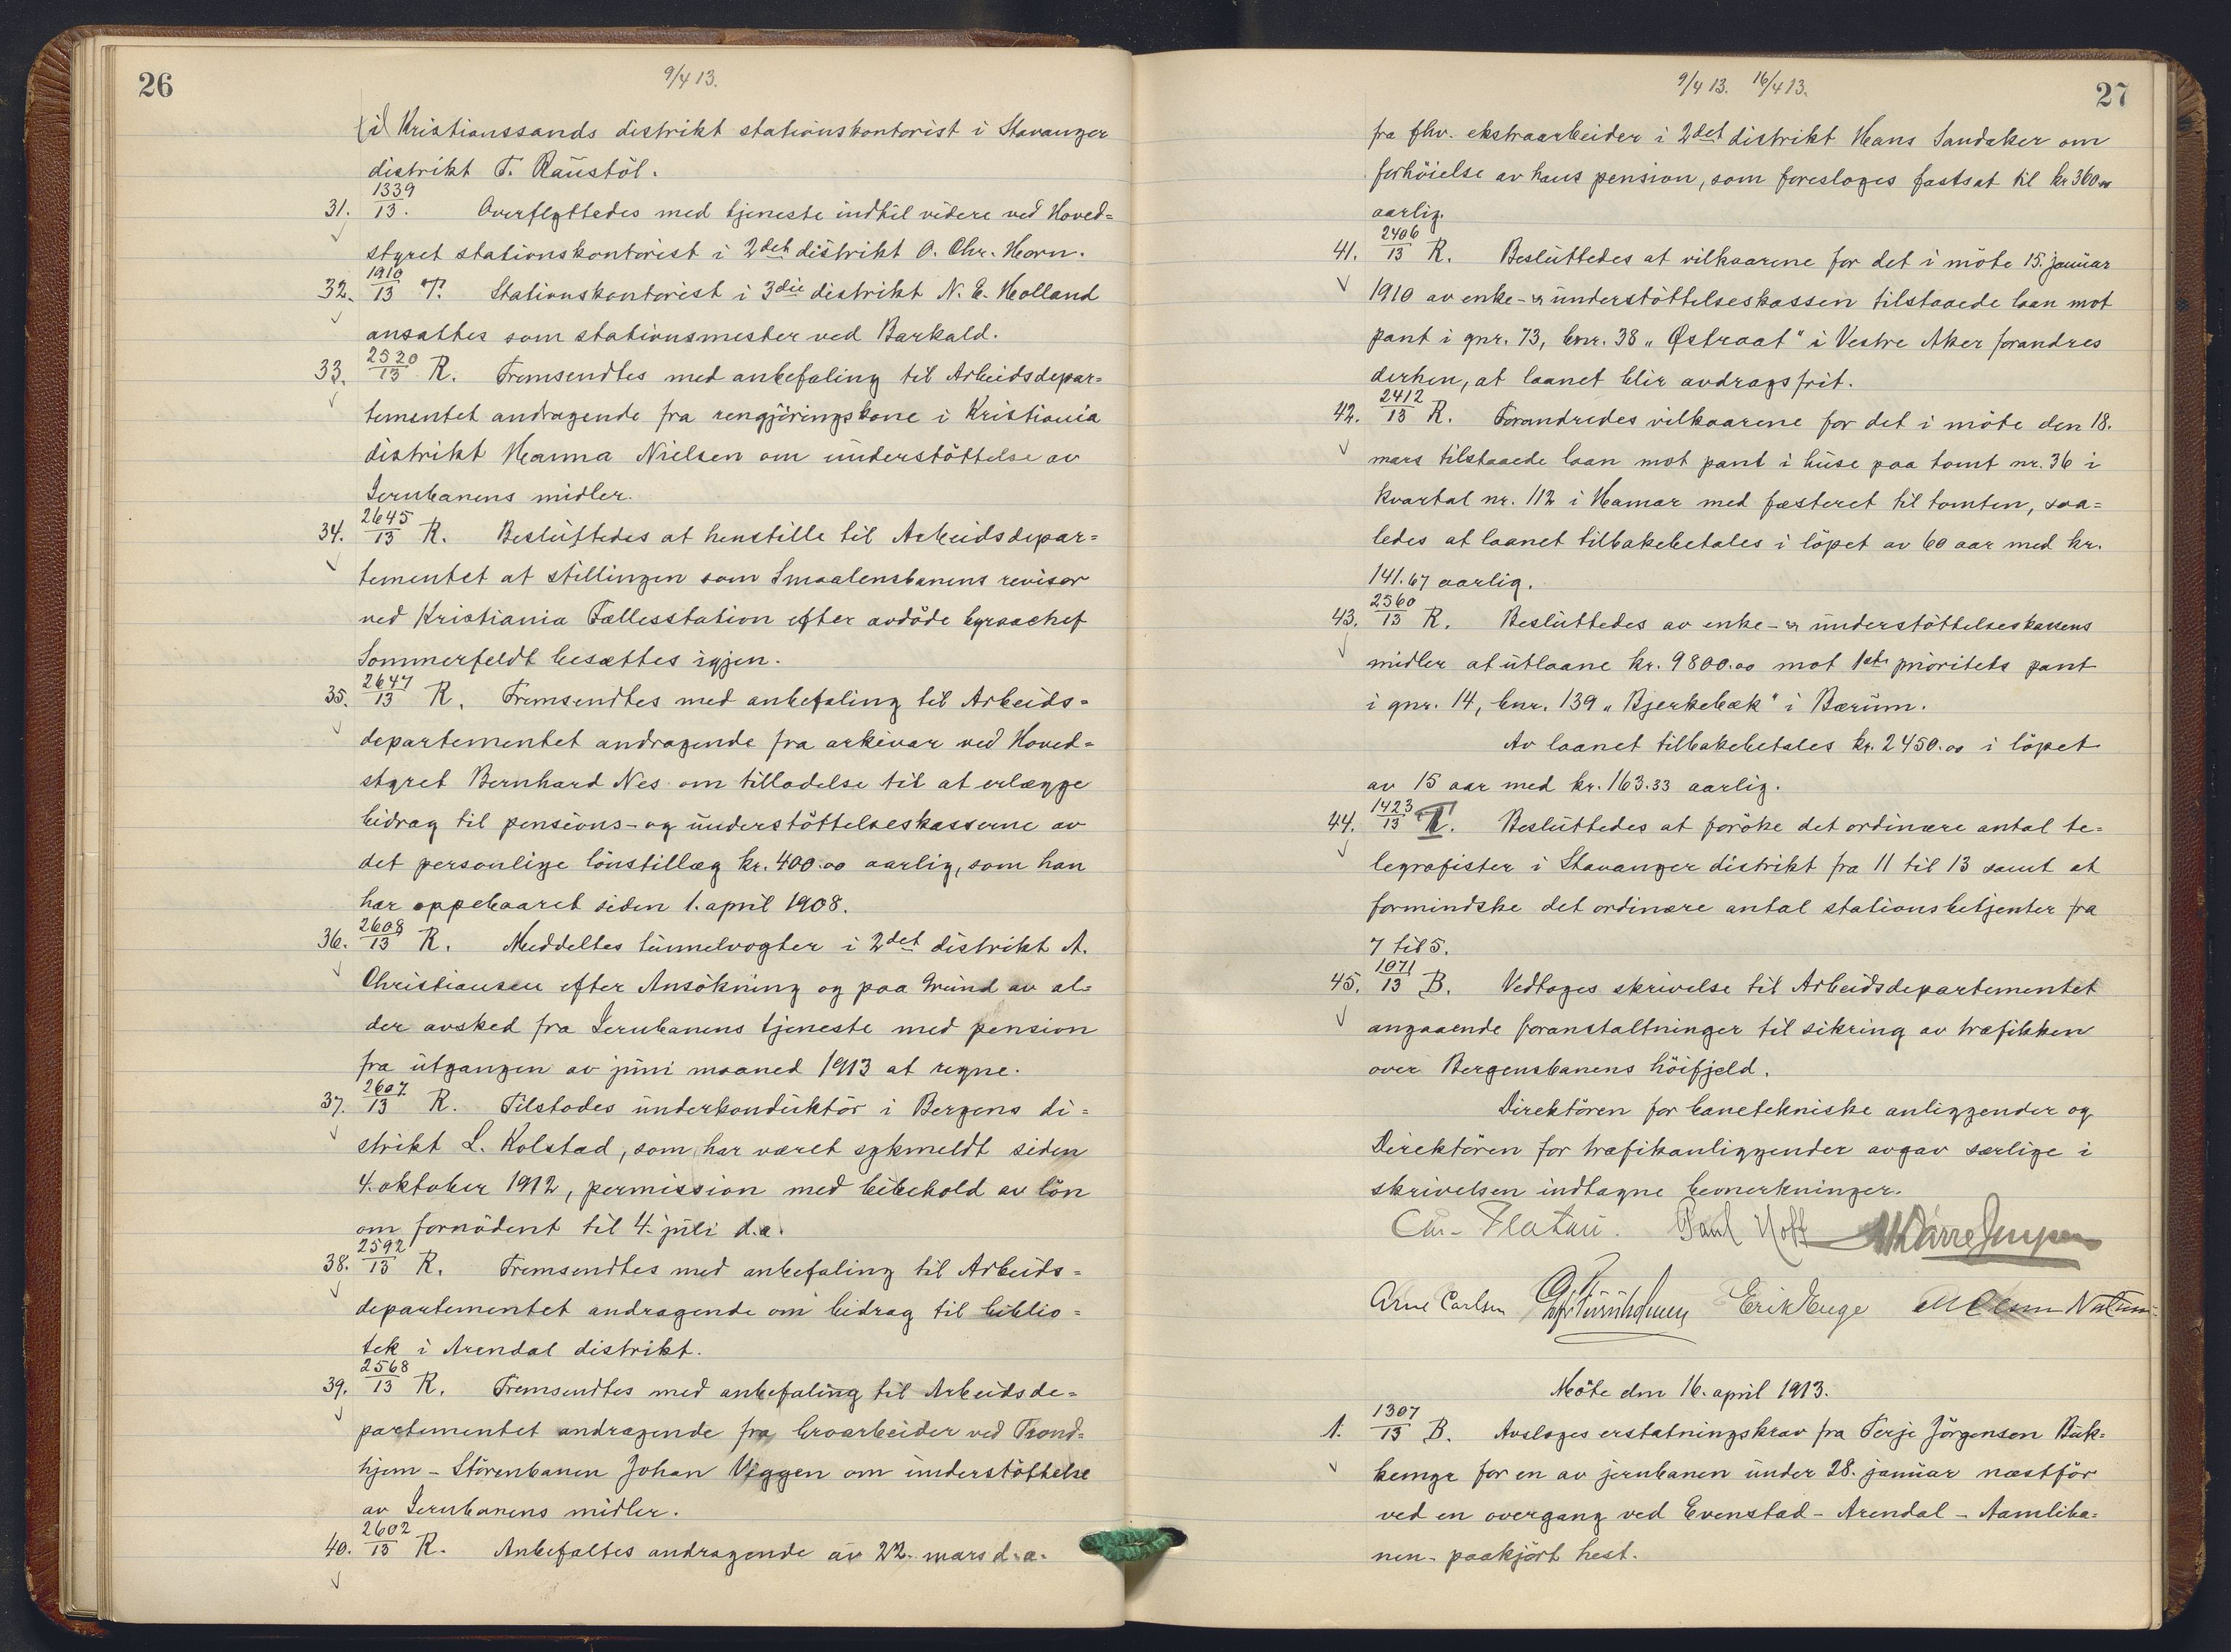 26
9/4 13.
i Kristianssands distrikt stationskontorist i Stavanger
distrikt T. Raustöl.
31. 1339/13. Overflyttedes med tjeneste indtil videre ved Hoved=
styret stationskontorist i 2det distrikt O. Chr. Horn.
32. 1910/13 T. Stationskontorist i 3die distrikt N. E. Holland
ansattes som stationsmester ved Barkald.
33. 2520/13 R. Fremsendtes med anbefaling til Arbeidsdepar=
tementet andragende fra rengjöringskone i Kristiania
distrikt Hanna Nielsen om understöttelse av
Jernbanens midler.
34. 2645/13 R. Besluttedes at henstille til Arbeidsdepar=
tementet at stillingen som Smaalensbanens revisor
ved Kristiania Fællesstation efter avdöde byraachef
Sommerfeldt besættes igjen.
35. 2647/13 R. Fremsendtes med anbefaling til Arbeids=
departementet andragende fra arkivar ved Hoved=
styret Bernhard Nes om tilladelse til at erlægge
bidrag til pensions- og understöttelseskasserne av
det personlige lönstillæg kr. 400.00 aarlig, som han
har oppebaaret siden 1. april 1908.
36. 2608/13 R. Meddeltes tunnelvogter i 2det distrikt A.
Christiansen efter Ansökning og paa Grund av al=
der avsked fra Jernbanens tjeneste med pension
fra utgangen av juni maaned 1913 at regne.
37. 2607/13 R. Tilstodes underkonduktör i Bergens di=
strikt L. Kolstad, som har været sykmeldt siden
4. oktober 1912, permission med bibehold av lön
om fornödent til 4. juli d.a.
38. 2592/13 R. Fremsendtes med anbefaling til Arbeids=
departementet andragende om bidrag til biblio=
tek i Arendal distrikt.
39. 2568/13 R. Fremsendtes med anbefaling til Arbeidsde=
partementet andragende fra broarbeider ved Trond=
hjem - Störenbanen Johan Viggen om understöttelse
av Jernbanens midler.
40. 2602/13 R. Anbefaltes andragende av 22. mars d.a.
9/4 13. 16/4 13.
27
fra fhv. ekstraarbeider i 2det distrikt Hans Sandaker om
forhöielse av hans pension, som foresloges fastsat til kr 360.00
aarlig.
41. 2406/13 R. Besluttedes at vilkaarene for det i möte 15. januar
1910 av enke- og understöttelseskassen tilstaaede laan mot
pant i gnr. 73, bnr. 38 „Østraat" i Vestre Aker forandres
derhen, at laanet blir avdragsfrit.
42. 2412/13 R. Forandredes vilkaarene for det i möte den 18.
mars tilstaaede laan mot pant i huse paa tomt nr. 36 i
kvartal nr. 112 i Hamar med fæsteret til tomten, saa=
ledes at laanet tilbakebetales i löpet av 60 aar med kr.
141.67 aarlig.
43. 2560/13 R. Besluttedes av enke- og understöttelseskassens
midler at utlaane kr. 9800.00 mot 1ste prioritets pant
i gnr. 14, bnr. 139 „Bjerkebæk" i Bærum.
Av laanet tilbakebetales kr. 2450.00 i löpet
av 15 aar med kr. 163.33 aarlig.
44. 1423/13 T. Besluttedes at foröke det ordinære antal te=
legrafister i Stavanger distrikt fra 11 til 13 samt at
formindske det ordinære antal stationsbetjenter fra
7 til 5.
45. 1071/13 B. Vedtoges skrivelse til Arbeidsdepartementet
angaaende foranstaltninger til sikring av trafikken
over Bergensbanens höifjeld.
Direktören for banetekniske anliggender og
Direktören for trafikanliggender avgav særlige i
skrivelsen indtagne bemerkninger.
Chr. Platou. Paul Hoff
Arne Carlsen Erik Enge
Möte den 16. april 1913.
1. 1307/13 B. Avsloges erstatningskrav fra Terje Jörgensen Buk=
kemyr for en av jernbanen under 28. januar næstför
ved en overgang ved Evenstad - Arendal - Aamliba=
nen - paakjört hest.